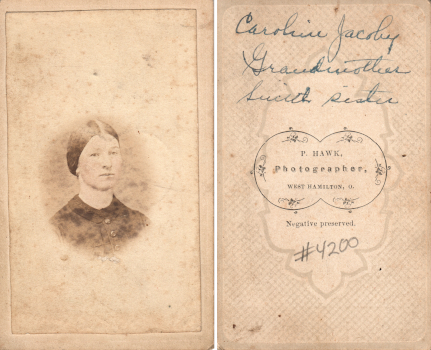 Caroline Jacoby
Grandmother
Smith sister
P. HAWK,
Photographer,
WEST HAMILTON, O.
Negative preserved.
#4200